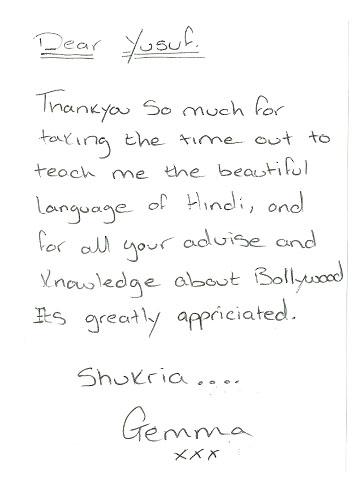 Dear Yusuf.
Thankyou so much for
taking the time out to
teach me the beautiful
language of Hindi, and
for all your advise and
knowledge about Bollywood
Its greatly appriciated.
Shukria....
Gemma
xxx